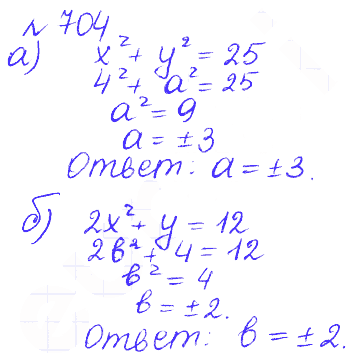 № 704
а) x² + y² = 25
4² + a² = 25
a² = 9
a = ±3
Ответ: a = ±3.
б) 2x² + y = 12
2в² + 4 = 12
в² = 4
в = ±2.
Ответ: в = ±2.